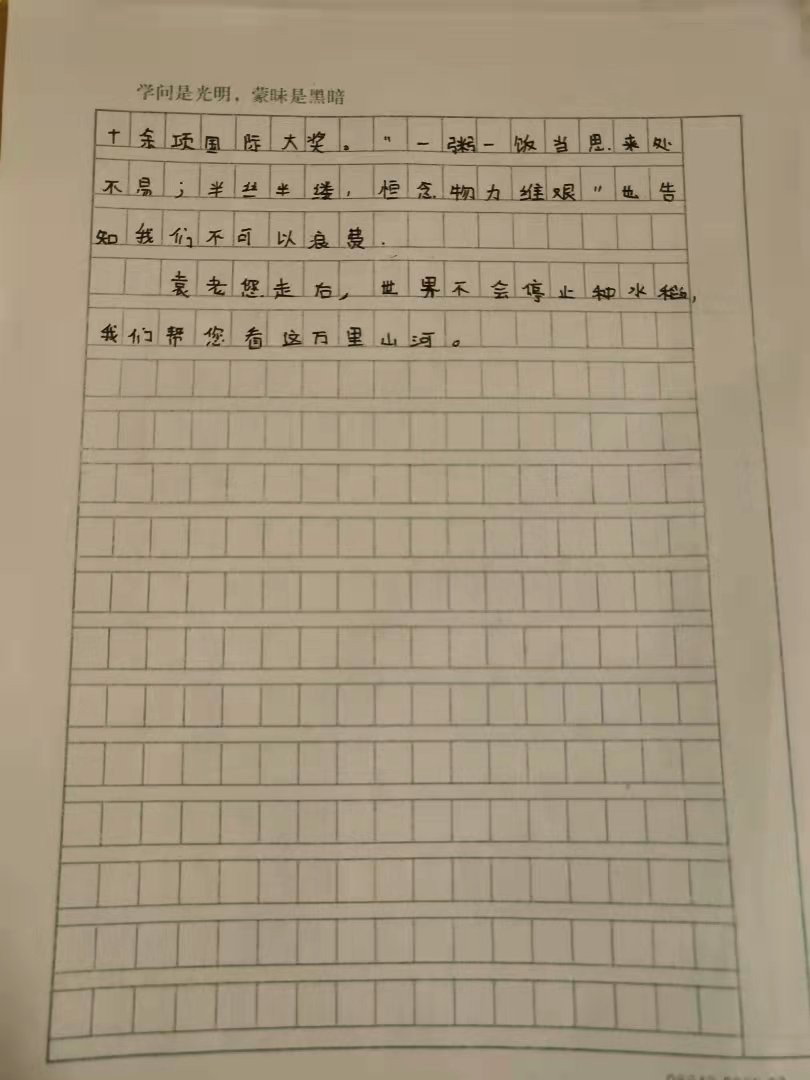 学问是光明，蒙昧是黑暗
十余项国际大奖。“一粥一饭当思来处
不易；半丝半缕，恒念物力维艰”也告
知我们不可以浪费.
袁老您走后，世界不会停止种水稻，
我们帮您看这万里山河。